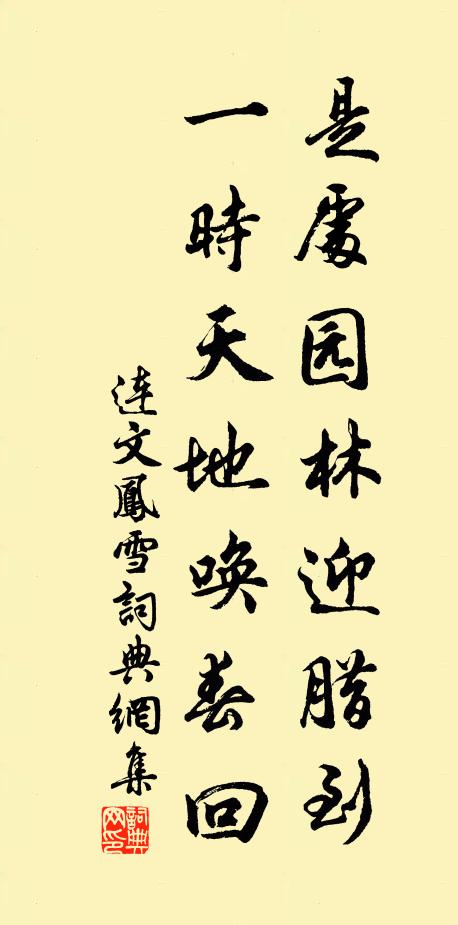 是處园林迎腊到
一時天地唤春回
連文鳳雪詞典網集
詞典网印